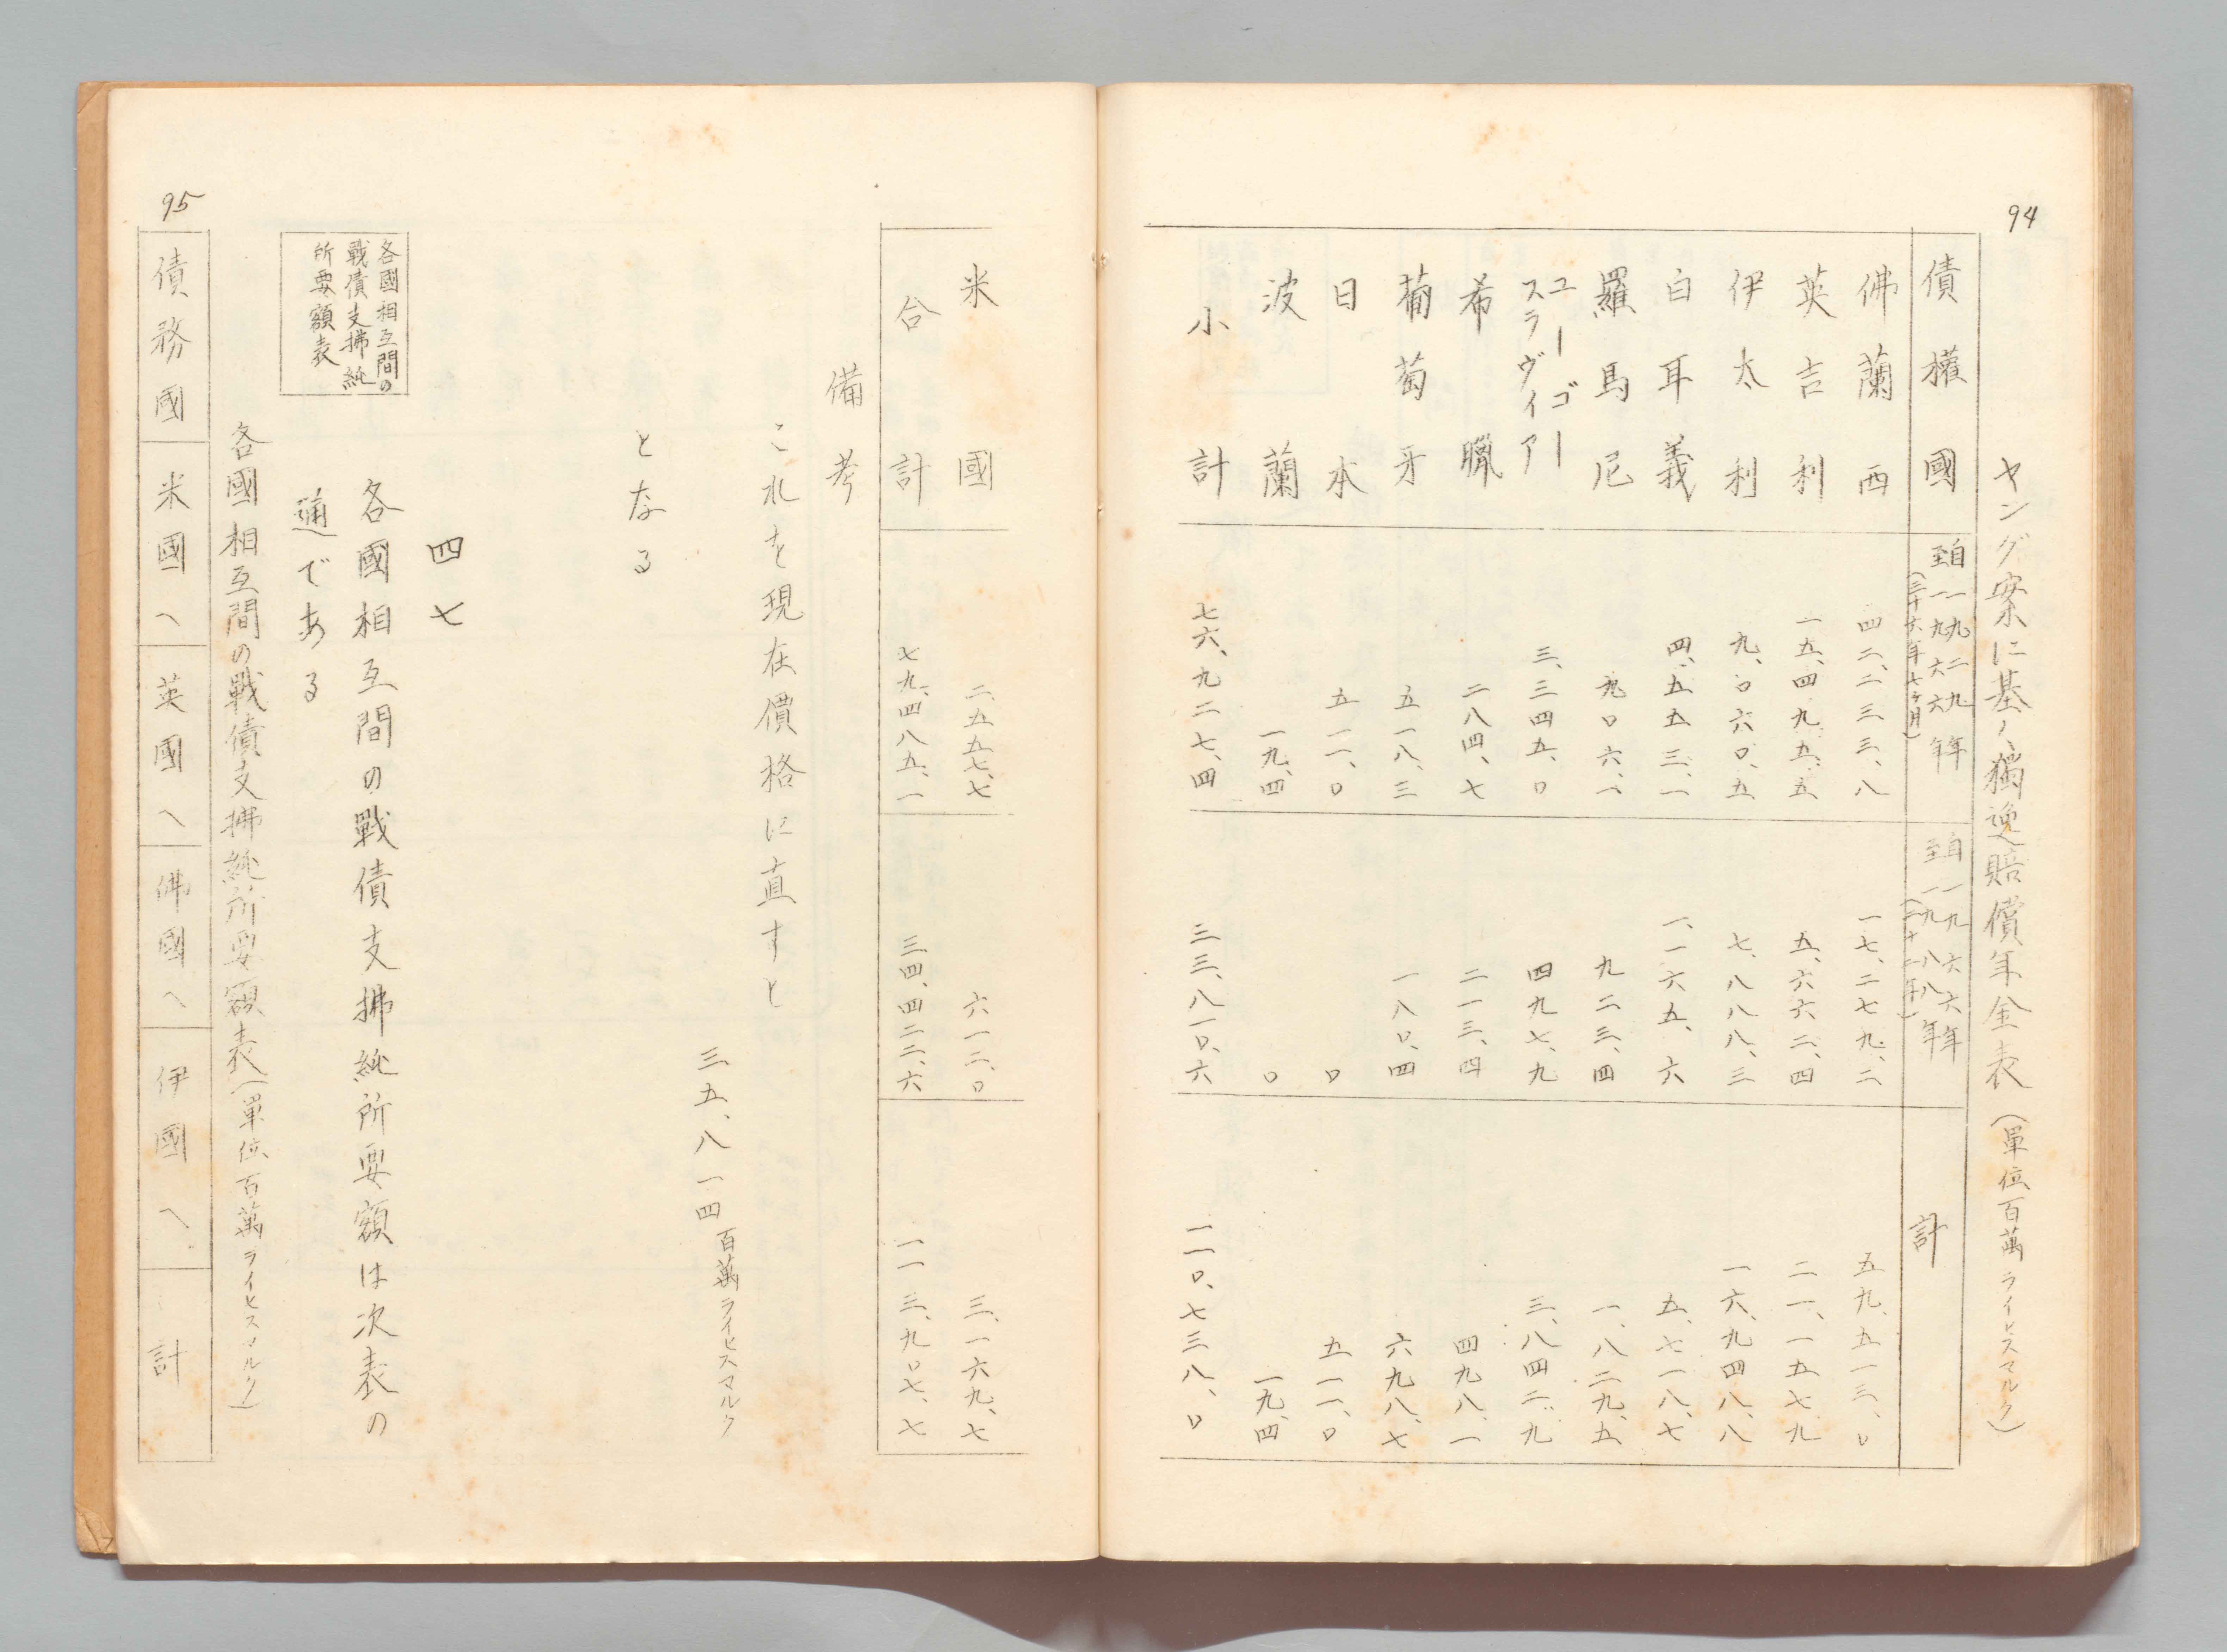 94
ヤング案に基く獨逸賠償年金表(單位百萬ライヒスマルク)
債權國 自一九二九年至一九六六年(三十六年七ヶ月) 自一九六六年至一九八八年(二十二年) 計
佛蘭西 四二、二三三、八 一七、二七九、二 五九、五一三、〇
英吉利 一五、四九五、五 五、六六二、四 二一、一五七九
伊太利 九、〇六〇、五 七、八八八、三 一六、九四八、八
白耳義 四、五五三、一 一、一六五、六 五、七一八、七
羅馬尼 九〇六、一 九二三、四 一、八二九、五
ユーゴースラヴィア 三、三四五、〇 四九七、九 三、八四二、九
希臘 二八四、七 二一三、四 四九八、一
葡萄牙 五一八、三 一八〇、四 六九八、七
日本 五一一、〇 〇 五一一、〇
波蘭 一九、四 〇 一九、四
小計 七六、九二七、四 三三、八一〇、六 一一〇、七三八、〇
米國 二、五五七、七 六一二、〇 三、一六九、七
合計 七九、四八五、一 三四、四二二、六 一一三、九〇七、七
備考
これを現在價格に直すと
三五、八一四百萬ライヒスマルク
となる
四七
各國相互間の戰債支拂純所要額は次表の
通である
各國相互間の
戰債支拂純
所要額表
各國相互間の戰債支拂純所要額表(單位百萬ライヒスマルク)
95
債務國 米國へ 英國へ 佛國へ 伊國へ 計